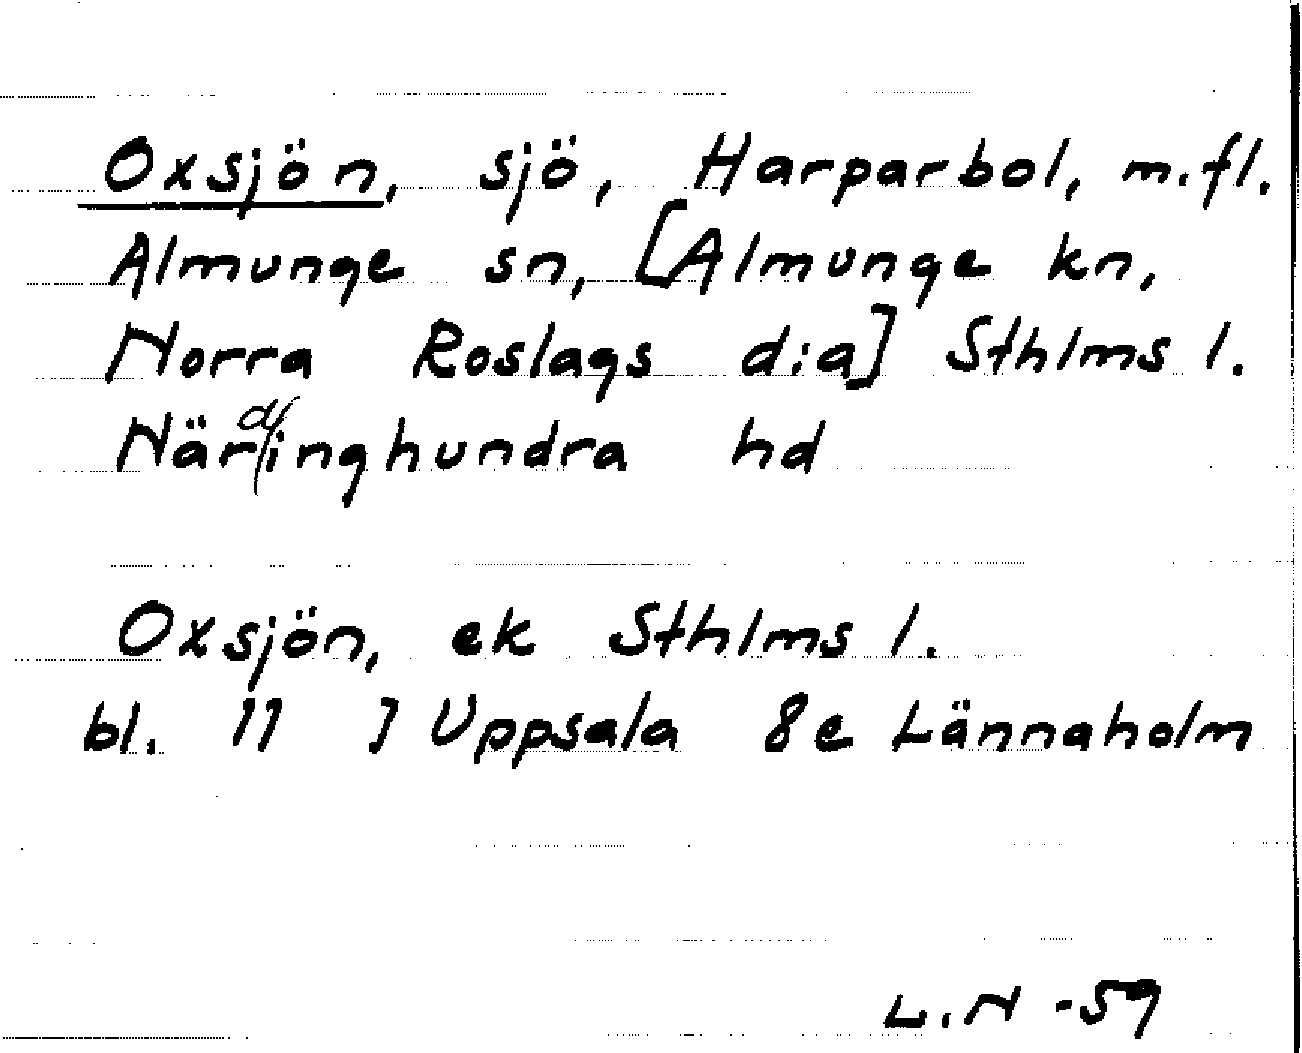 Oxsjön, sjö, Harparbol, m.fl.
Almunge sn, [Almunge kn,
Norra Roslags d:a] Sthlms l.
Närdinghundra hd
Oxsjön, ek Sthlms l.
bl. 11 J Uppsala 8e Lännaholm
L.N -59